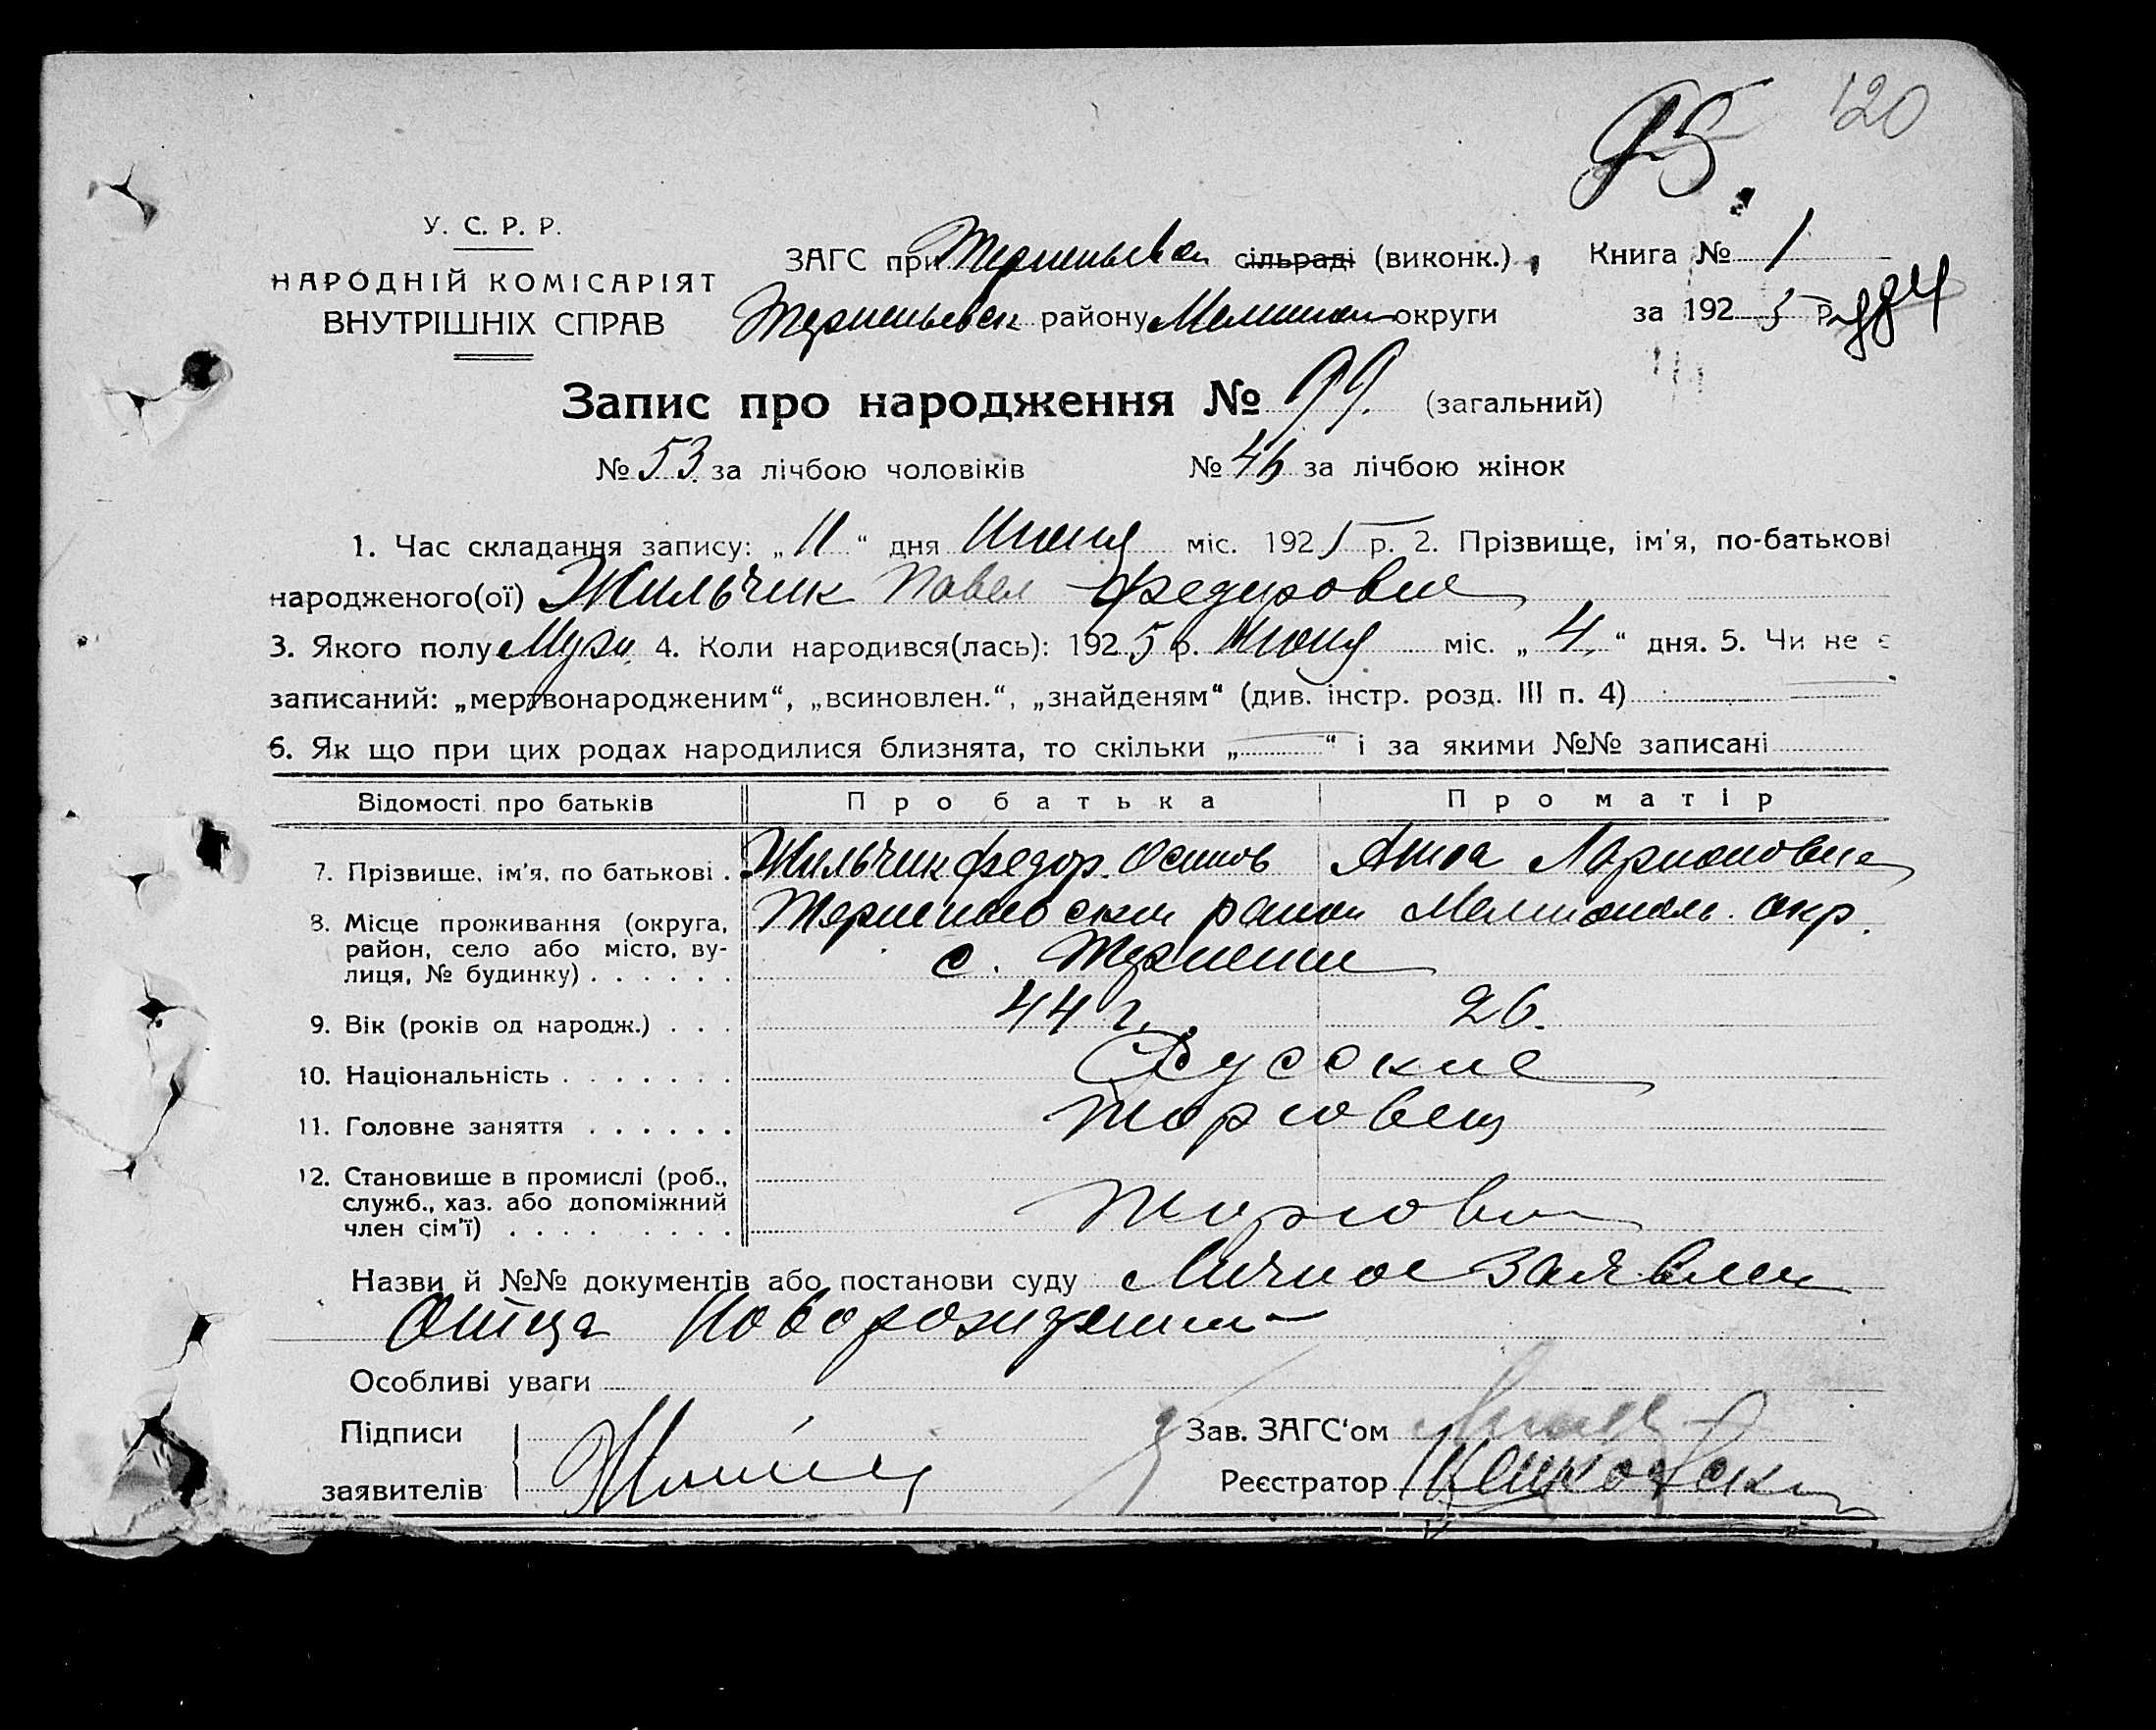 95. 120
У. С. Р. Р.
НАРОДНІЙ КОМІСАРІЯТ
ВНУТРІШНІХ СПРАВ
ЗАГС при сільраді (виконк.) Книга № 1
району округи за 1925 р.
Запис про народження № 99. (загальний)
№ 53. за лічбою чоловіків № 46 за лічбою жінок
1. Час складання запису: „11“ дня Июня міс. 1925 р. 2. Прізвище, ім'я, по-батькові
народженого(ої) Жильчик Павел Федорович
3. Якого полу Муж. 4. Коли народився(лась): 1925 р. Июня міс. „4.“ дня. 5. Чи не є
записаний: „мертвонародженим“, „всиновлен.“, „знайденям“ (див. інстр. розд. III п. 4)
6. Як що при цих родах народилися близнята, то скільки „ “ і за якими №№ записані
Відомості про батьків Про батька Про матір
7. Прізвище, ім'я, по батькові . Жильчик Федор. Осипов Анна Ларионовна
8. Місце проживання (округа, район Мелитополь. окр.
район, село або місто, ву- с. Терпение
лиця, № будинку) . . . . . .
9. Вік (років од народж.) . . . 44 г. 26.
10. Національність . . . . . . . Русские
11. Головне заняття . . . . . . Торговец
12. Становище в промислі (роб.,
служб., хаз. або допоміжний
член сім'ї) . . . . . . . . .
Назви й №№ документів або постанови суду Личное заявлен
Отца
Особливі уваги
Підписи Зав. ЗАГС'ом
заявителів Реєстратор